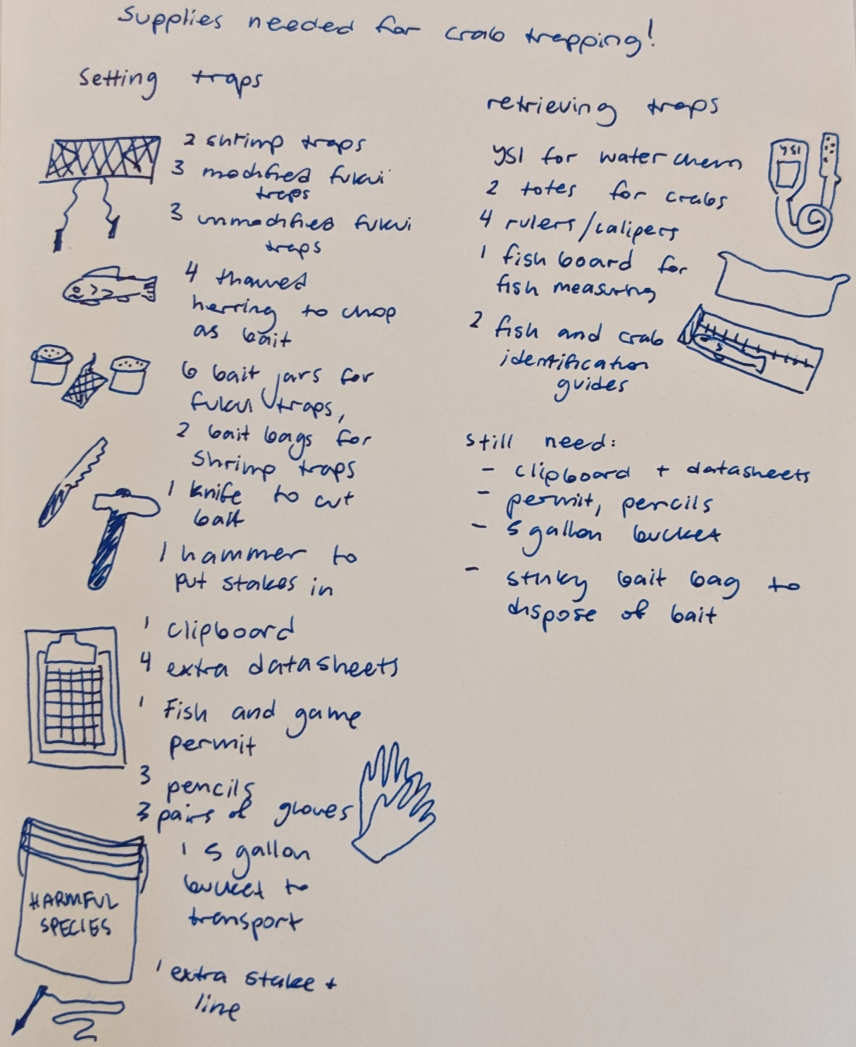 Supplies needed for crab trapping!
Setting traps
2 shrimp traps
3 modified fukui
traps
3 unmodified fukui
traps
4 thawed
herring to chop
as bait
6 bait jars for
fukui traps,
2 bait bags for
shrimp traps
1 knife to cut
bait
1 hammer to
put stakes in
1 clipboard
4 extra datasheets
1 Fish and game
permit
3 pencils
3 pairs of gloves
1 5 gallon
bucket to
transport
HARMFUL
SPECIES
1 extra stake +
line
retrieving traps
YSI for water chem
YSI
2 totes for crabs
4 rulers/calipers
1 fish board for
fish measuring
2 fish and crab
identification
guides
still need:
- clipboard + datasheets
- permit, pencils
- 5 gallon bucket
- stinky bait bag to
dispose of bait